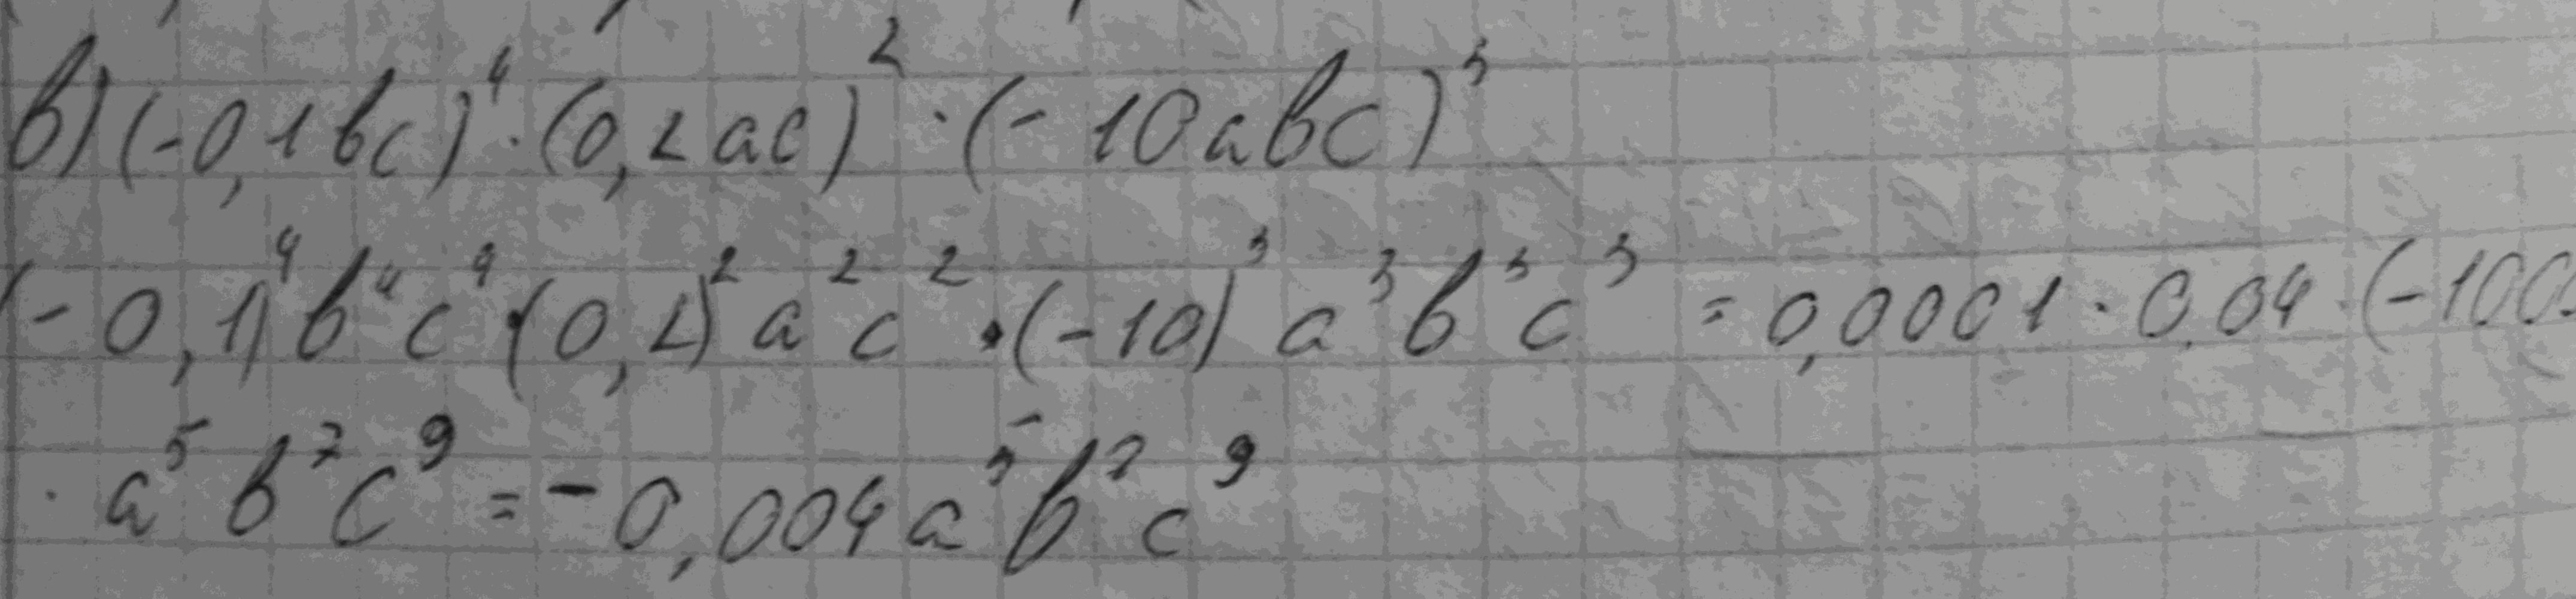 в) (-0,1bc)⁴ · (0,2ac)² · (-10abc)³
(-0,1)⁴ b⁴ c⁴ · (0,2)² a² c² · (-10)³ a³ b³ c³ = 0,0001 · 0,04 · (-100
· a⁵ b⁷ c⁹ = -0,004 a⁵ b⁷ c⁹